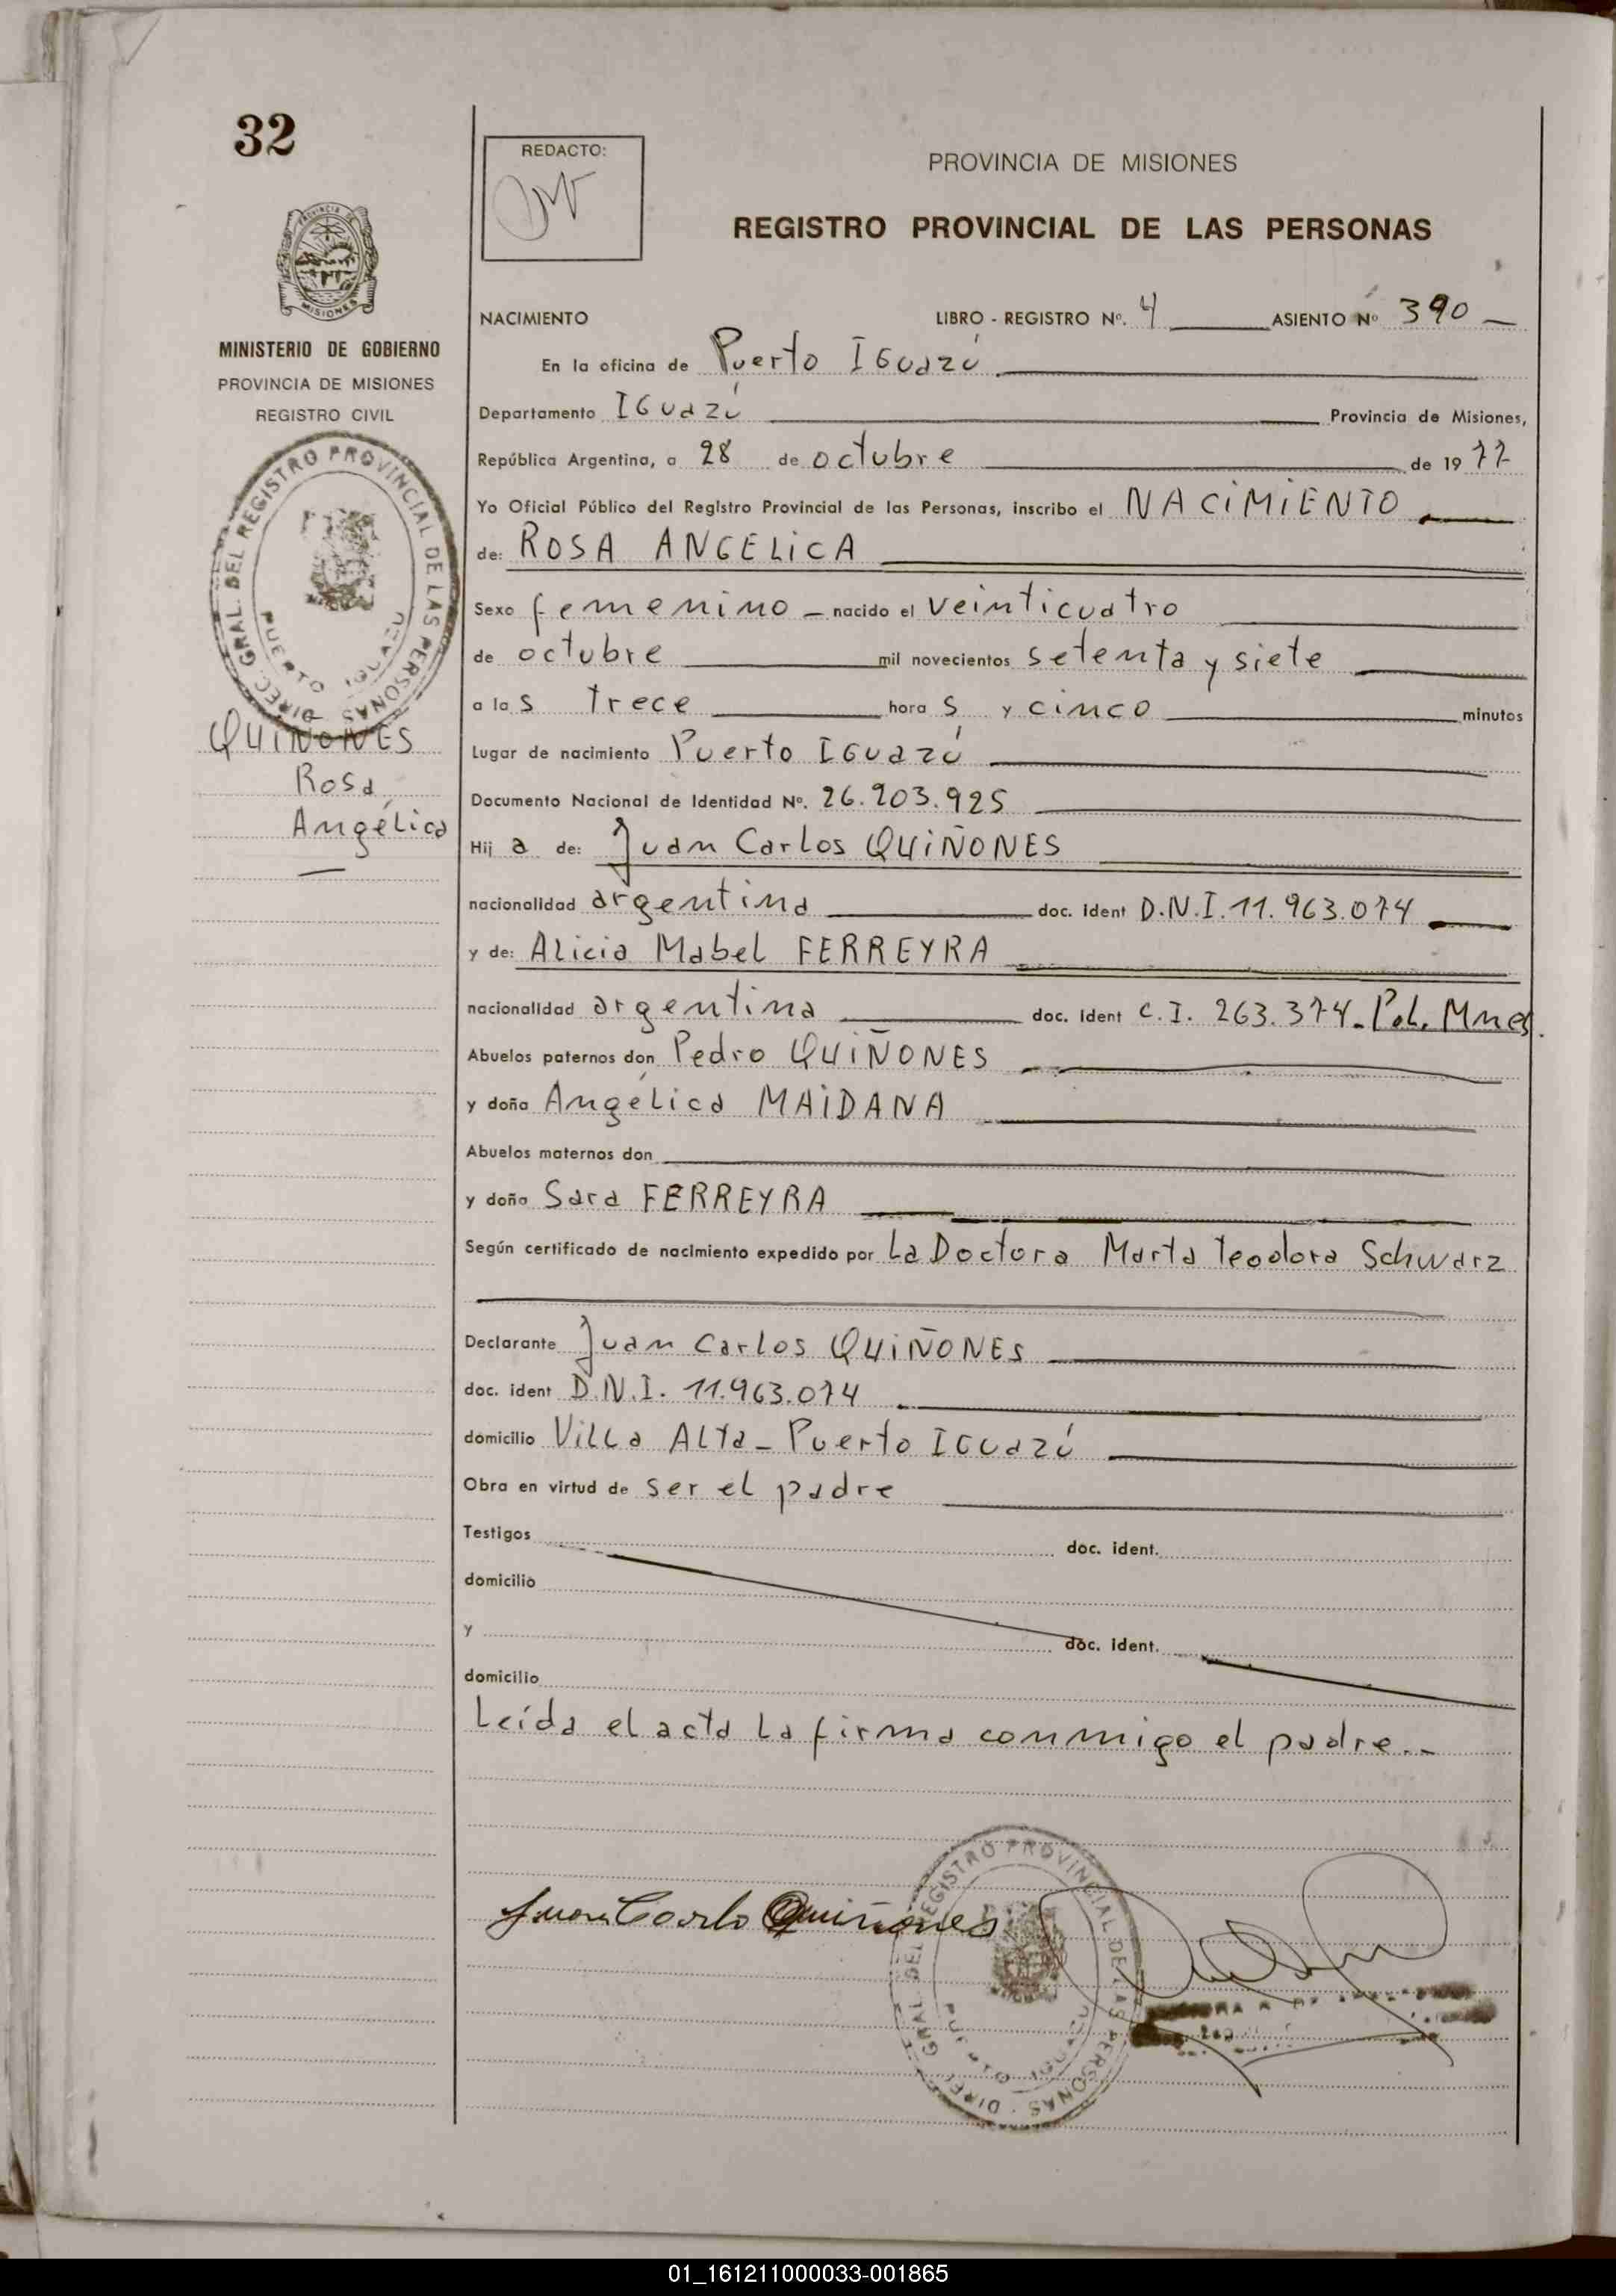 32
REDACTO:
PROVINCIA DE MISIONES
REGISTRO PROVINCIAL DE LAS PERSONAS
PROVINCIA DE
MISIONES
MINISTERIO DE GOBIERNO
PROVINCIA DE MISIONES
REGISTRO CIVIL
DIREC. GRAL. DEL REGISTRO PROVINCIAL DE LAS PERSONAS
PUERTO IGUAZU
QUIÑONES
Rosa
Angélica
NACIMIENTO LIBRO - REGISTRO Nº. 4 ASIENTO Nº 390
En la oficina de Puerto IGuazú
Departamento IGuazú Provincia de Misiones,
República Argentina, a 28 de octubre de 1977
Yo Oficial Público del Registro Provincial de las Personas, inscribo el NACIMIENTO
de: ROSA ANGELICA
Sexo femenino - nacido el veinticuatro
de octubre mil novecientos setenta y siete
a las trece horas y cinco minutos
Lugar de nacimiento Puerto IGuazú
Documento Nacional de Identidad Nº. 26.203.925
Hija de: Juan Carlos QUIÑONES
nacionalidad argentina doc. ident D.N.I. 11.963.074
y de: Alicia Mabel FERREYRA
nacionalidad argentina doc. ident C.I. 263.374. Pol. Mnes.
Abuelos paternos don Pedro QUIÑONES
y doña Angélica MAIDANA
Abuelos maternos don
y doña Sara FERREYRA
Según certificado de nacimiento expedido por La Doctora Marta Teodora Schwarz
Declarante Juan Carlos QUIÑONES
doc. ident D.N.I. 11.963.074
domicilio Villa Alta - Puerto IGuazú
Obra en virtud de ser el padre
Testigos doc. ident.
domicilio
y doc. ident.
domicilio
Leída el acta la firma conmigo el padre..
Juan Carlo Quiñones
DIREC. GRAL. DEL REGISTRO PROVINCIAL DE LAS PERSONAS
PUERTO IGUAZU
01_161211000033-001865